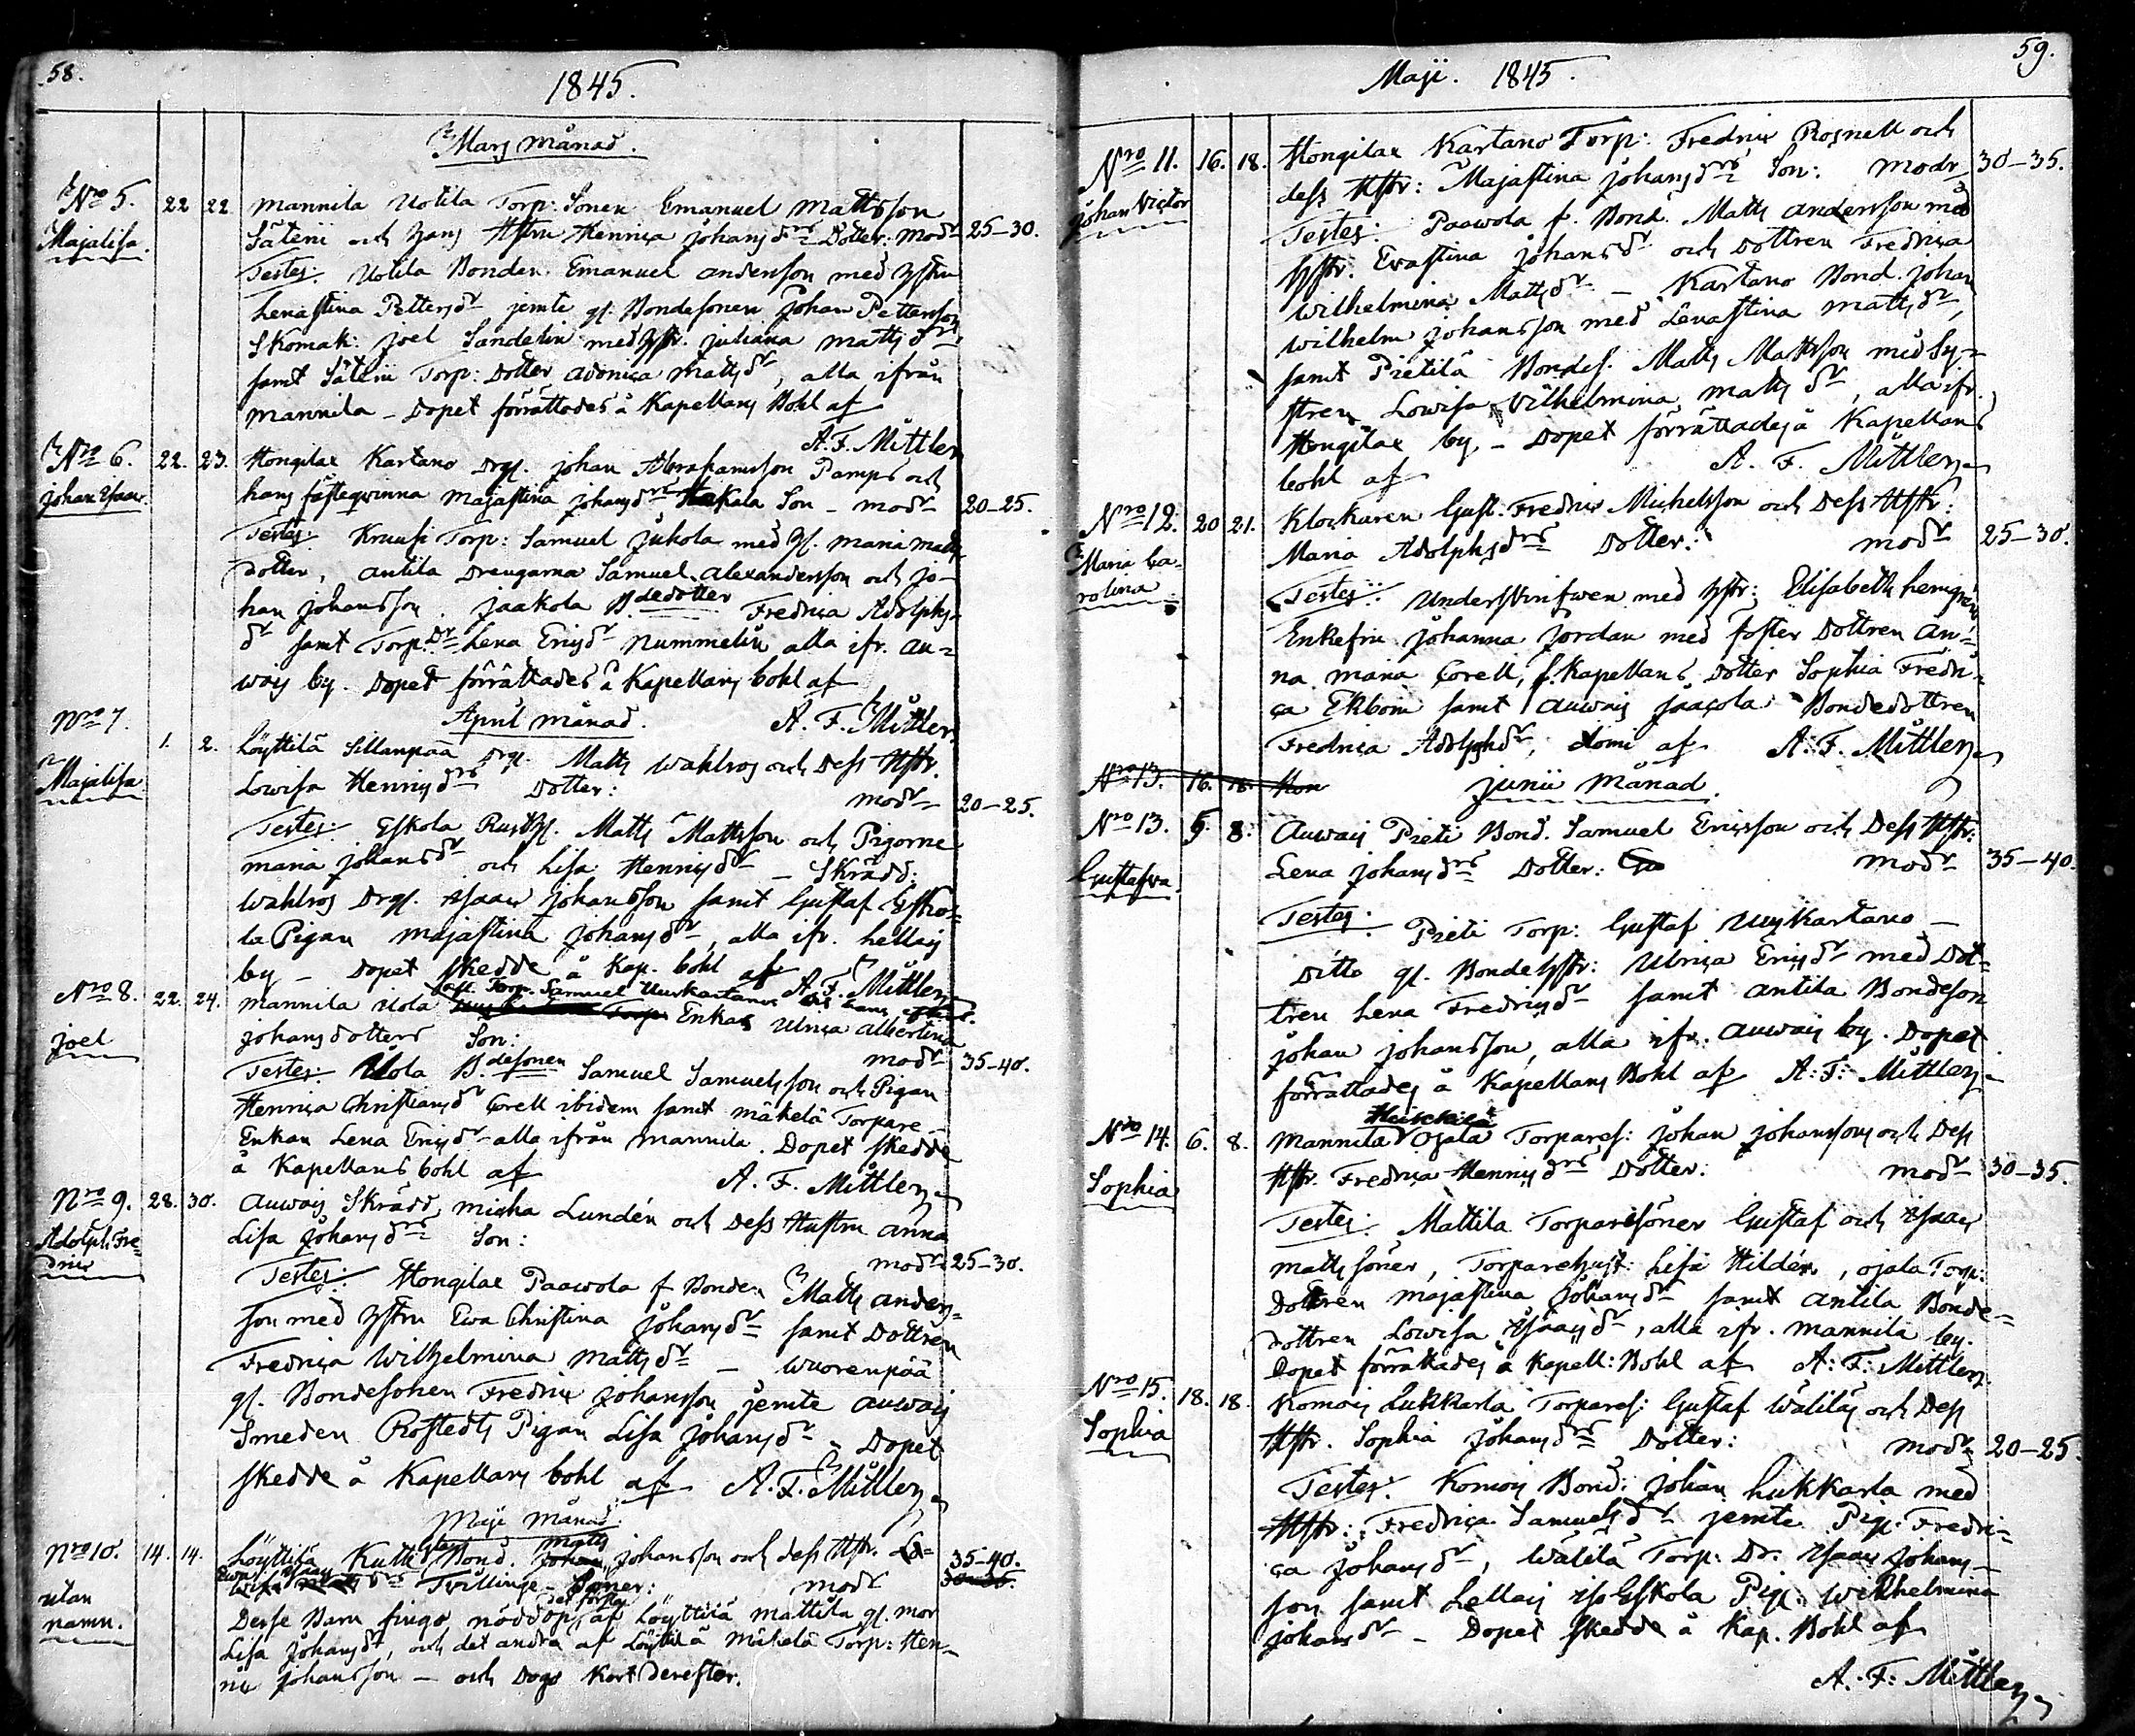 58.
1845.
Mars månad.
Nro 5. 22 22 Mannila Uotila Torp: Sonen Emanuel Mattsson
Majalisa. Säterii och hans Hstru Henrica Johansdrs Dotter: modr 25-30.
Testes: Uotila Bonden Emanuel Andersson med hstru
Lenastina Pettersdr jemte gl. Bondesonen Johan Pettersson
Skomak: Joel Sandelin med hstr. Juliana Mattsdr
samt Säterii Torp: Dotter Adonica Mattsdr, alla ifrån
Mannila – Dopet förrättades å Kapellans Bohl af
A. F. Mittler
Nro 6. 22. 23. Hongilax Kartano Drgl. Johan Abrahamsson Pamps och
Johan Isaac hans fästeqwinna Majastina Johansdrs Son – modr 20-25.
Testes: Kruusi Torp: Samuel Jukola med gl. Maria Matts
dotter, Antila Drengarna Samuel Alexandersson och Jo-
han Johansson. Jaakola B.dedotter Fredrica Adolphs-
dr samt Torp. Dr Lena Ericsdr Nummelin alla ifr. Au-
wais by. Dopet förrättades å Kapellans bohl af
April månad. A. F. Mittler
Nro 7. 1. 2. Löyttilä Sillanpää Drgl. Matts Wahlros och Dess Hstr.
Majalisa Lowisa Henricsdrs Dotter: modr 20-25.
Testes: Eskola Rusth. Matts Mattsson och Pigorne
Maria Johansdr och Lisa Henricsdr – Skrädd:
Wahlros Drgl. Isaac Johansson samt Gustaf Esko-
la Pigan Majastina Johansdr, alla ifr. Hellais
by – Dopet skedde å Kap. bohl af A. F. Mittler
Nro 8. 22. 24. Mannila Uola afl. Torp. Samuel Uuskartanos Enkas Ulrica Albertina
Joel Johansdotters Son: modr 35-40.
Testes: Uola B.desonen Samuel Samuelsson och Pigan
Henrica Christiansdr Corell ibidem samt Mäkelä Torpare-
Enkan Lena Ericsdr alla ifrån Mannila. Dopet skedde
å Kapellans bohl af A. F. Mittler
Nro 9. 28. 30. Auwais Skrädd. Micha Lundén och Dess Hustru Anna
Adolph Fre-
dric Lisa Johansdrs Son: modr 25-30.
Testes: Hongilax Paawola f. Bonden Matts Anders-
son med hstru Ewa Christina Johansdr samt Dottren
Fredrica Wilhelmina Mattsdr – Wuorenpää
gl. Bondesonen Fredric Johansson jemte Auwais
Smeden Rostedts Pigan Lisa Johansdr – Dopet
skedde å Kapellans bohl af A. F. Mittler
Maji Månad.
Nro 10. 14. 14. Löyttilä Kutti Bond. Matts Johansson och dess Hstr.
utan
namn. Tvillinge-Söner: modr 35-40.
Desse Barn fingo nöddop, det första af Löyttilä Mattila gl. mor
Lisa Johansdr, och det andra af Löyttilä Mäkelä Torp: Hen-
ric Johansson – och Dogo kort derefter.
59.
Maji. 1845.
Nro 11. 16. 18. Hongilax Kartano Torp: Fredric Rosnell och
Johan Victor dess Hstr: Majastina Johansdrs Son: modr 30-35.
Testes: Paawola f. Bond. Matts Andersson med
hstr. Ewastina Johansdr och Dottren Fredrica
Wilhelmina Mattsdr – Kartano Bond. Johan
Wilhelm Johansson med Lenastina Mattsdr,
samt Pietilä Bondes. Matts Mattsson med Sy-
stren Lowisa Vilhelmina Mattsdr, alla ifr.
Hongilax by – Dopet förrättades å Kapellans
bohl af A. F. Mittler
Nro 12. 20 21. Klockaren Gust. Fredric Michelsson och Dess Hstr:
Maria Ca-
rolina Maria Adolphsdrs Dotter: modr 25-30.
Testes: Underskrifwen med hstr: Elisabeth
Enkefru Johanna Jordan med foster Dottren An-
na Maria Corell, f. Kapellans Dotter Sophia Fredri-
ca Ekbom samt Auwais Jaacola Bondedottren
Fredrica Adolphsdr, domi af A. F. Mittler
Nro 13. 16. 18. Hon
Junii Månad.
Nro 13. 5. 8. Auwais Pieti Bond. Samuel Ericsson och Dess Hstr:
Gustafwa. Lena Johansdrs Dotter: modr 35-40.
Testes: Pieti Torp: Gustaf Uuskartano –
Ditto gl. Bondehstr: Ulrica Ericsdr med Dot-
tren Lena Fredricsdr samt Antila Bondeson
Johan Johansson, alla ifr. Auwais by. Dopet
förrättades å Kapellans Bohl af A. F. Mittler
Nro 14. 6. 8. Mannila Heickilä Ojala Torpares: Johan Johansson och Dess
Sophia Hstr. Fredrica Henricsdrs Dotter: modr 30-35.
Testes: Mattila Torparesöner Gustaf och Isaac
Matts söner, Torparehust: Lisa Hildén, Ojala Torp:
Dottren Majastina Johansdr samt Antila Bonde-
dottren Lowisa Isaacsdr, alla ifr. Mannila by.
Dopet förrättades å Kapell: Bohl af A. F. Mittler
Nro 15. 18. 18. Komois Lukkarla Torpares: Gustaf Wälilä och Dess
Sophia Hstr. Sophia Johansdrs Dotter: modr 20-25.
Testes: Komois Bond: Johan Lukkarla med
Hstr: Fredrica Samuelsdr jemte Pig. Fredri-
ca Johansdr, Wälilä Torp: Dr. Isaac Johans-
son samt Lellais Iso Eskola Pig. Wilhelmina
Johansdr – Dopet skedde å Kap. Bohl af
A. F. Mittler